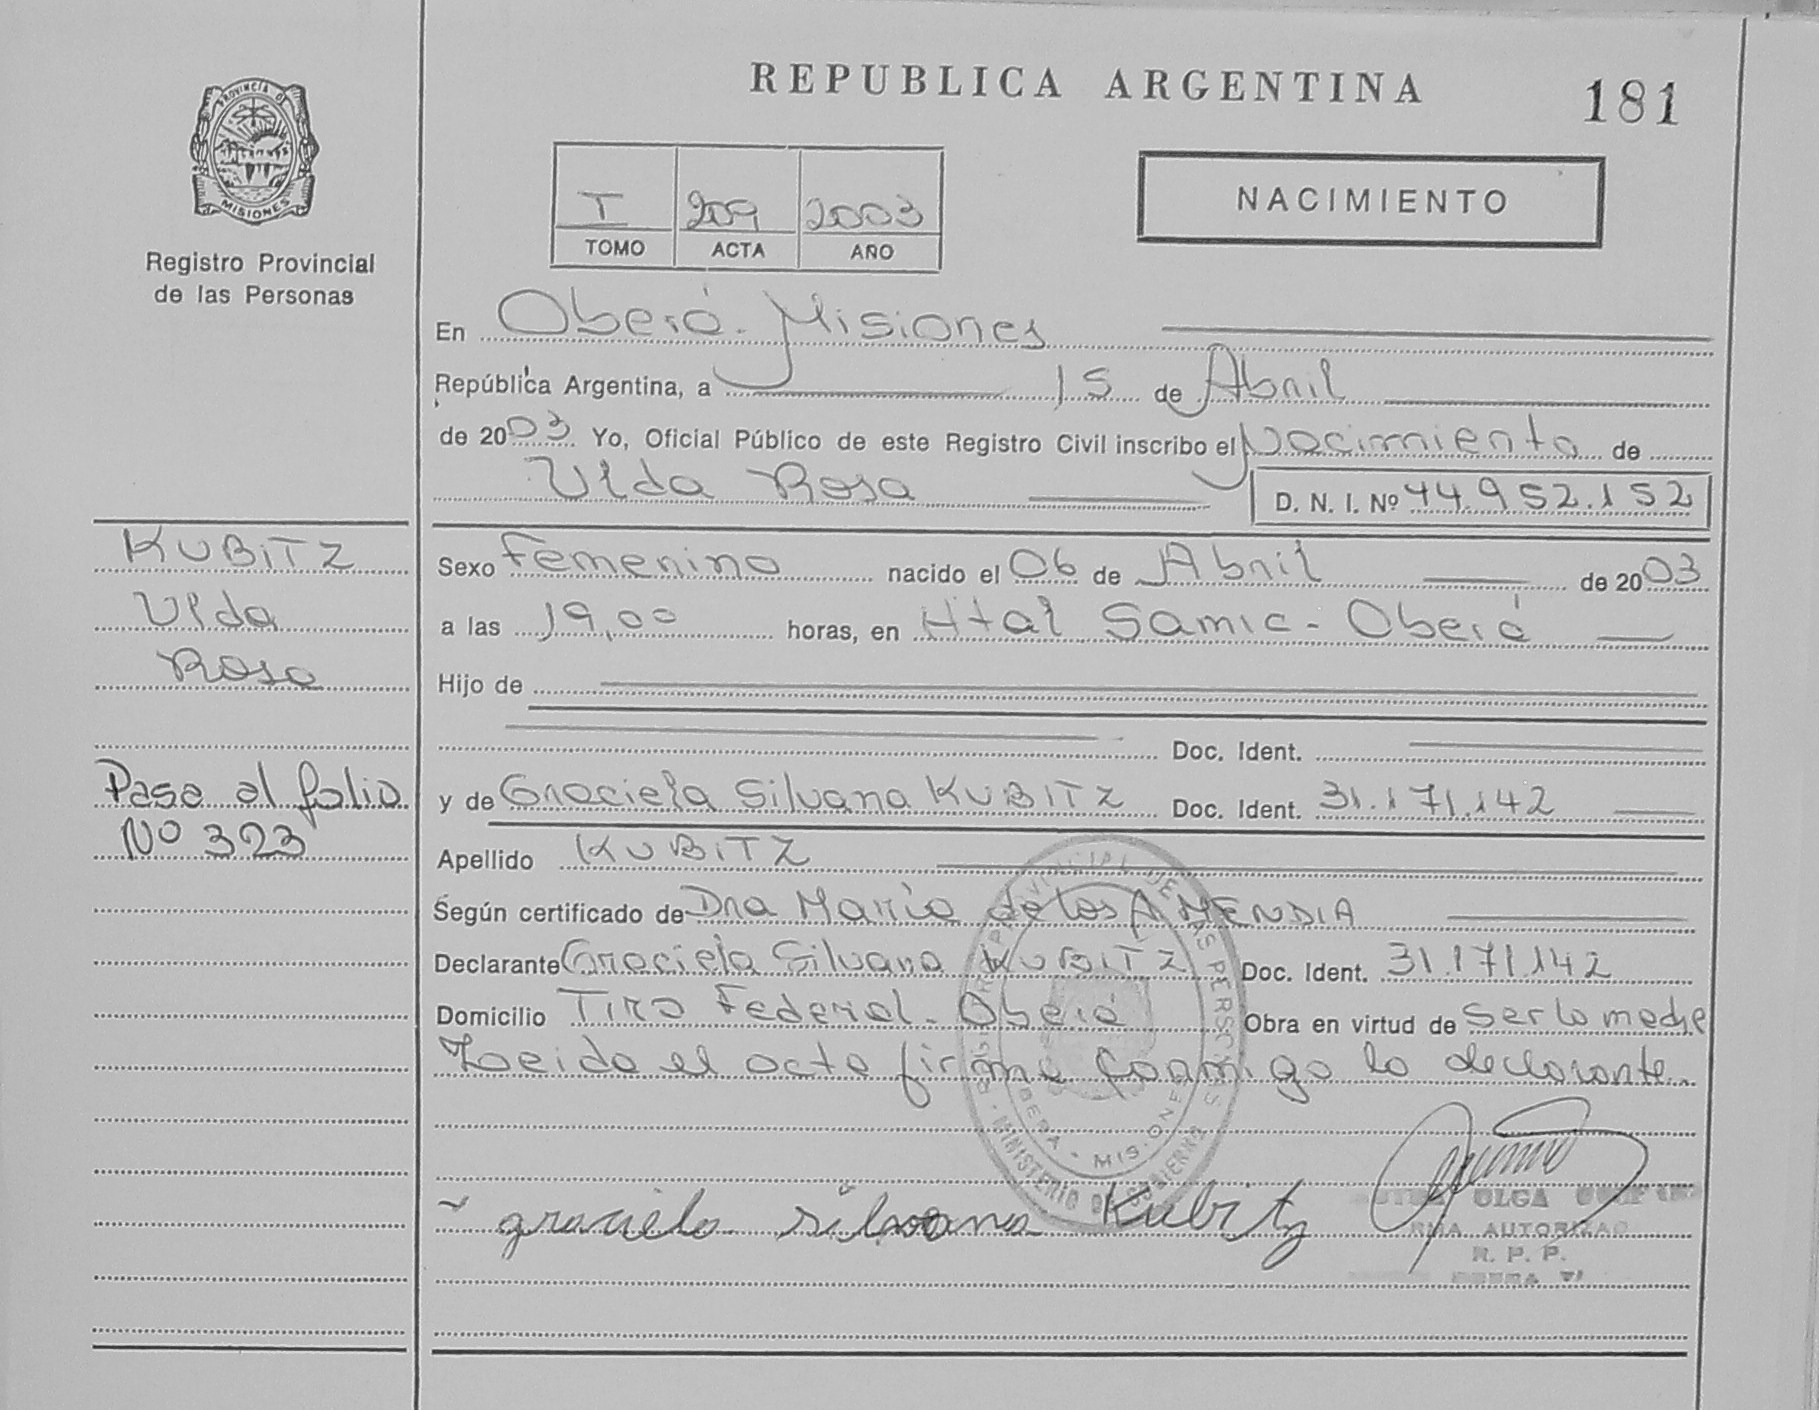 REPUBLICA ARGENTINA
181
PROVINCIA DE
MISIONES
Registro Provincial
de las Personas
I 209 2003
TOMO ACTA AÑO
NACIMIENTO
En Oberá - Misiones
República Argentina, a 15 de Abril
de 2003 Yo, Oficial Público de este Registro Civil inscribo el Nacimiento de
Ulda Rosa D. N. I. Nº 44.952.152
KUBITZ
Ulda
Rosa
Pasa al folio
Nº 323
Sexo Femenino nacido el 06 de Abril de 2003
a las 19,00 horas, en Htal Samic - Oberá
Hijo de
Doc. Ident.
y de Graciela Silvana KUBITZ Doc. Ident. 31.171.142
Apellido KUBITZ
Según certificado de Dra Maria de los A MENDIA
Declarante Graciela Silvana KUBITZ Doc. Ident. 31.171.142
Domicilio Tiro Federal - Oberá Obra en virtud de ser la madre
Leida el acta firma conmigo la declarante
graciela silvana Kubitz
OLGA
AUTORIZAD
R. P. P.
MINISTERIO DE GOBIERNO
OBERA - MISIONES